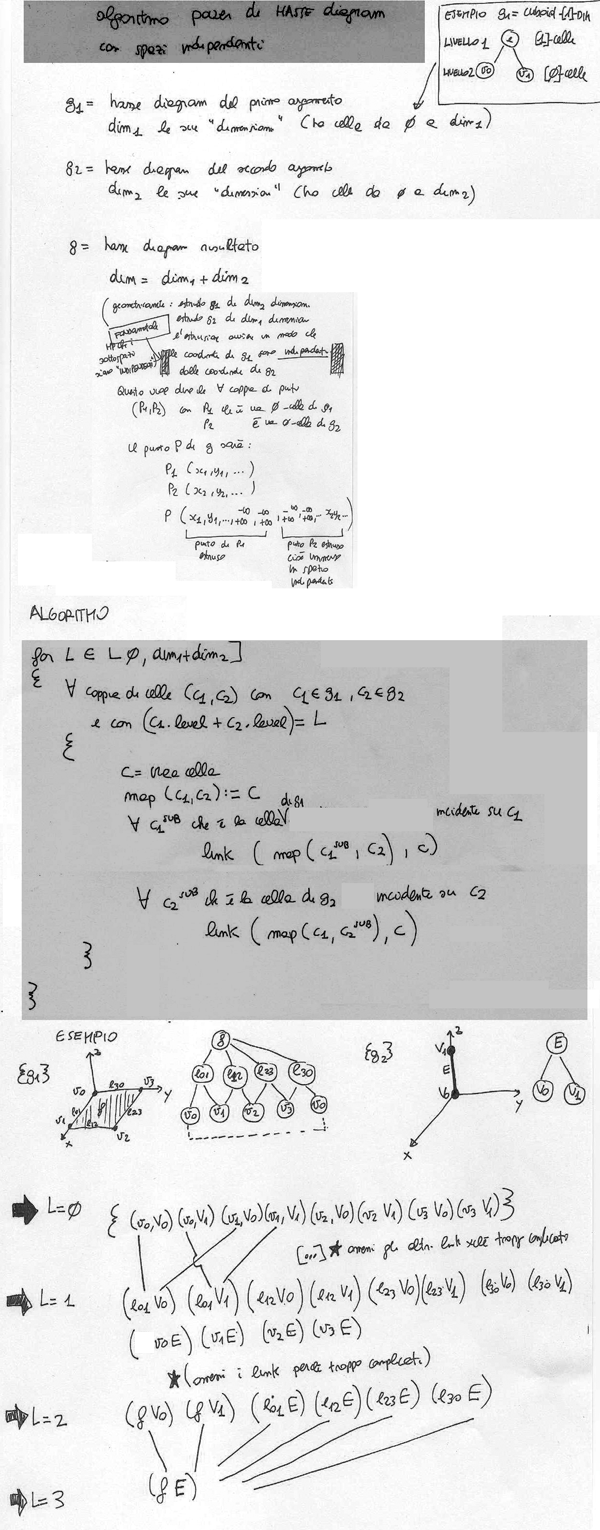 algoritmo power di HASSE diagram
con spazi indipendenti
ESEMPIO g1 = cuboid [1]-DIM
LIVELLO 1 e [1]-celle
LIVELLO 2 v0 v1 [Ø]-celle
g1 = hasse diagram del primo argomento
dim1 le sue "dimensioni" (ho celle da Ø a dim1)
g2 = hasse diagram del secondo argomento
dim2 le sue "dimensioni" (ho celle da Ø a dim2)
g = hasse diagram risultato
dim = dim1 + dim2
geometricamente: estrudo g1 di dim2 dimensioni
estrudo g2 di dim1 dimensioni
FONDAMENTALE
l'estrusione avviene in modo che
le coordinate di g1 sono indipendenti
dalle coordinate di g2
sottospazi
siano "INDIPENDENTI"
Questo vuol dire che ∀ coppia di punti
(P1, P2) con P1 che è una Ø-cella di g1
P2 è una Ø-cella di g2
il punto P di g sarà:
P1 (x1, y1, ...)
P2 (x2, y2, ...)
P (x1, y1, ..., -∞ +∞, -∞ +∞, -∞ +∞, -∞ +∞, ... x2 y2 ...)
punto di P1 estruso
punto P2 estruso
cioè immerso
in spazio
indipendente
ALGORITMO
for L ∈ [Ø, dim1+dim2]
{
∀ coppie di celle (c1, c2) con c1 ∈ g1, c2 ∈ g2
e con (c1.level + c2.level) = L
{
c = crea cella
map (c1, c2) := c
∀ c1^SUB che è la cella di g1 incidente su c1
link ( map (c1^SUB, c2), c)
∀ c2^SUB che è la cella di g2 incidente su c2
link ( map (c1, c2^SUB), c)
}
}
ESEMPIO
{g1} z v0 e30 v3 y e01 f e23 v1 e12 v2 x
f
e01 e12 e23 e30
v0 v1 v2 v3 v0
{g2} z V1 E V0 y x
E
V0 V1
L=Ø { (v0,V0) (v0,V1) (v1,V0) (v1,V1) (v2,V0) (v2 V1) (v3 V0) (v3 V1) }
[...] ★ ometti gli altri link troppo complicato
L=1 (e01 V0) (e01 V1) (e12 V0) (e12 V1) (e23 V0) (e23 V1) (e30 V0) (e30 V1)
(v0 E) (v1 E) (v2 E) (v3 E)
★ (ometti i link perché troppo complicati)
L=2 (f V0) (f V1) (e01 E) (e12 E) (e23 E) (e30 E)
(f E)
L=3